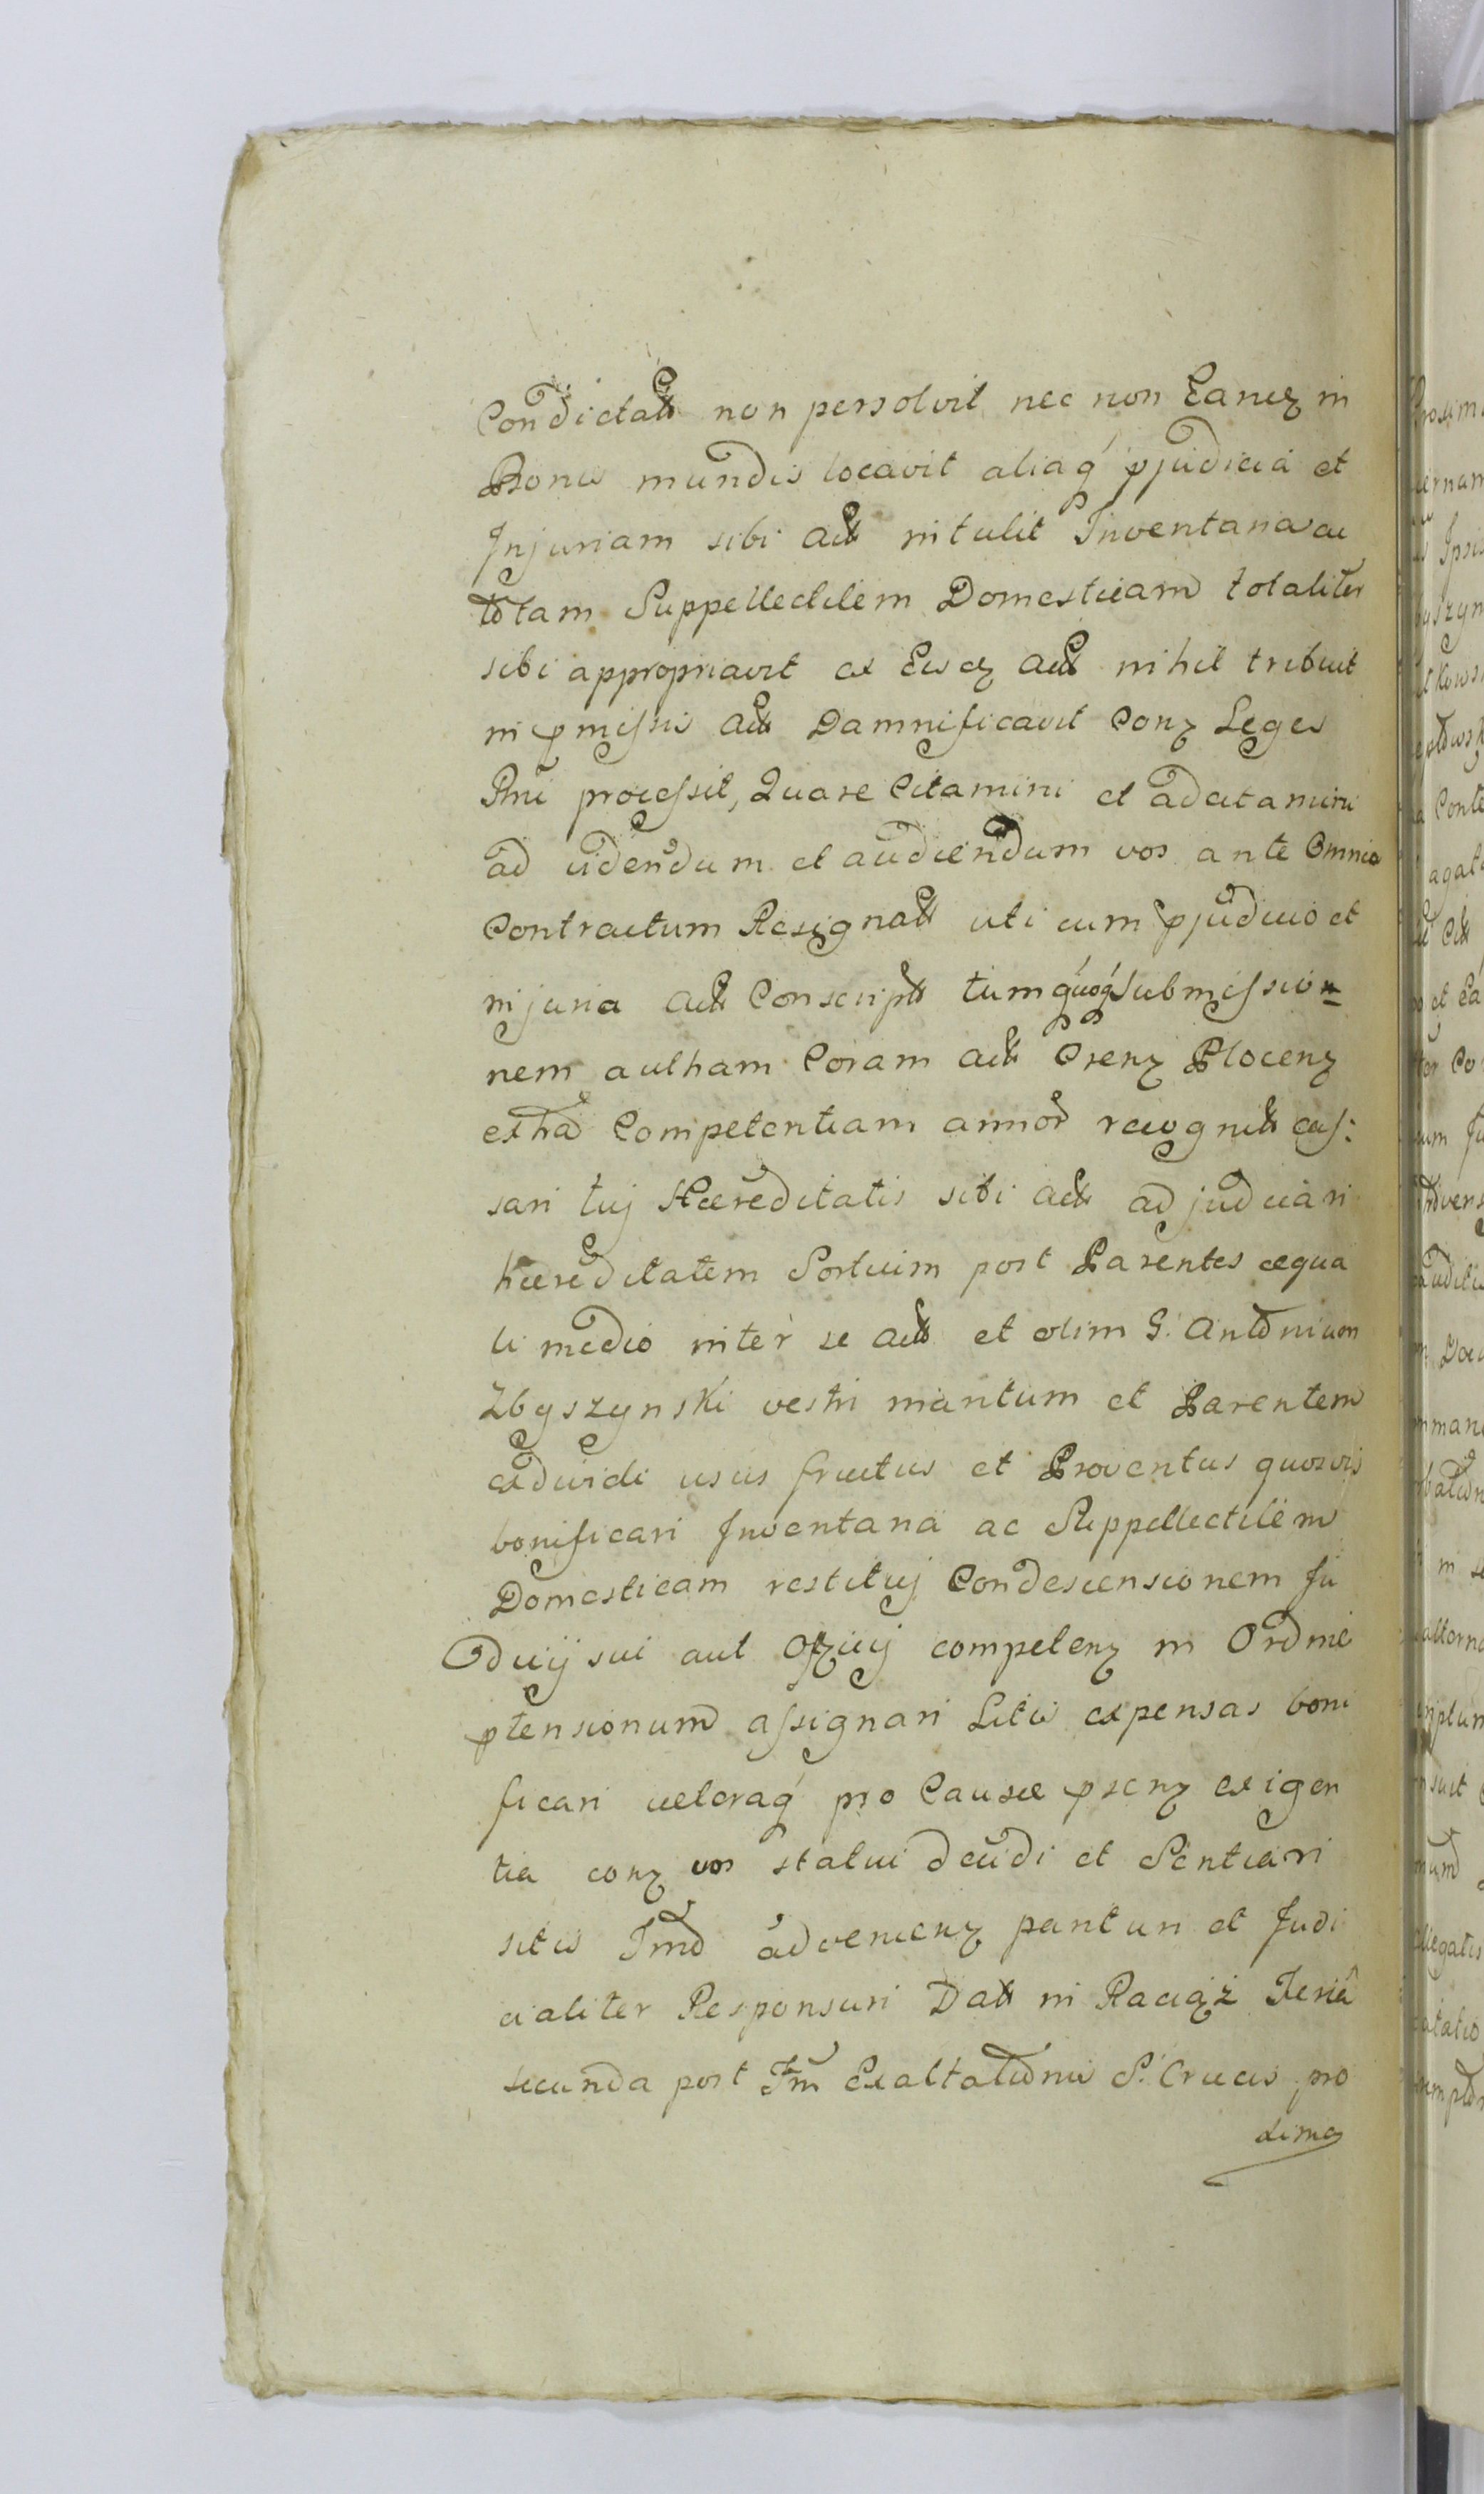 Condictatt non persolvit nec non Eanɋ in
Bonis mundis locavit aliaq́ pjudicia et
Injuriam sibi Actt intulit Inventaria ac
totam Suppellectilem Domesticam totaliter
sibi appropriavit ex Eisɋ Actt nihil tribuit
in pmissis Actt Damnificavit Conɀ Leges
Rni processit, Quare Citamini et adcitamini
ad videndum et audiendum vos ante Omnia
Contractum Resignatt uti cum pjudicio et
injuria Actt Conscriptt tum quoq́ Submissio=
nem aulham Coram Actt Crenɀ Plocenɀ
extra Competentiam annor recognitt cas:
sari tuj Hæreditatis sibi Actt adjudicari
hæreditatem Sortium post Parentes æqua
li medio inter se Actt et olim G. Antonium
Zbyszynski vestri maritum et Parentem
exdividi usus fructus et Proventus quosvis
bonificari Inventaria ac Suppellectilem
Domesticam restituj Condescensionem Ju
dicij sui aut Offzij competenɀ in Ordine
ptensionum assignari Litis expensas boni
ficari cæteraq́ pro Causæ psenɀ exigen
tia conɀ vos statui decidi et Sentiari
sitis Tmo advenienɀ parituri et Judi
cialiter Responsuri Datt in Raciąż Feria
secunda post Fm Exaltationis S. Crucis pro
xima